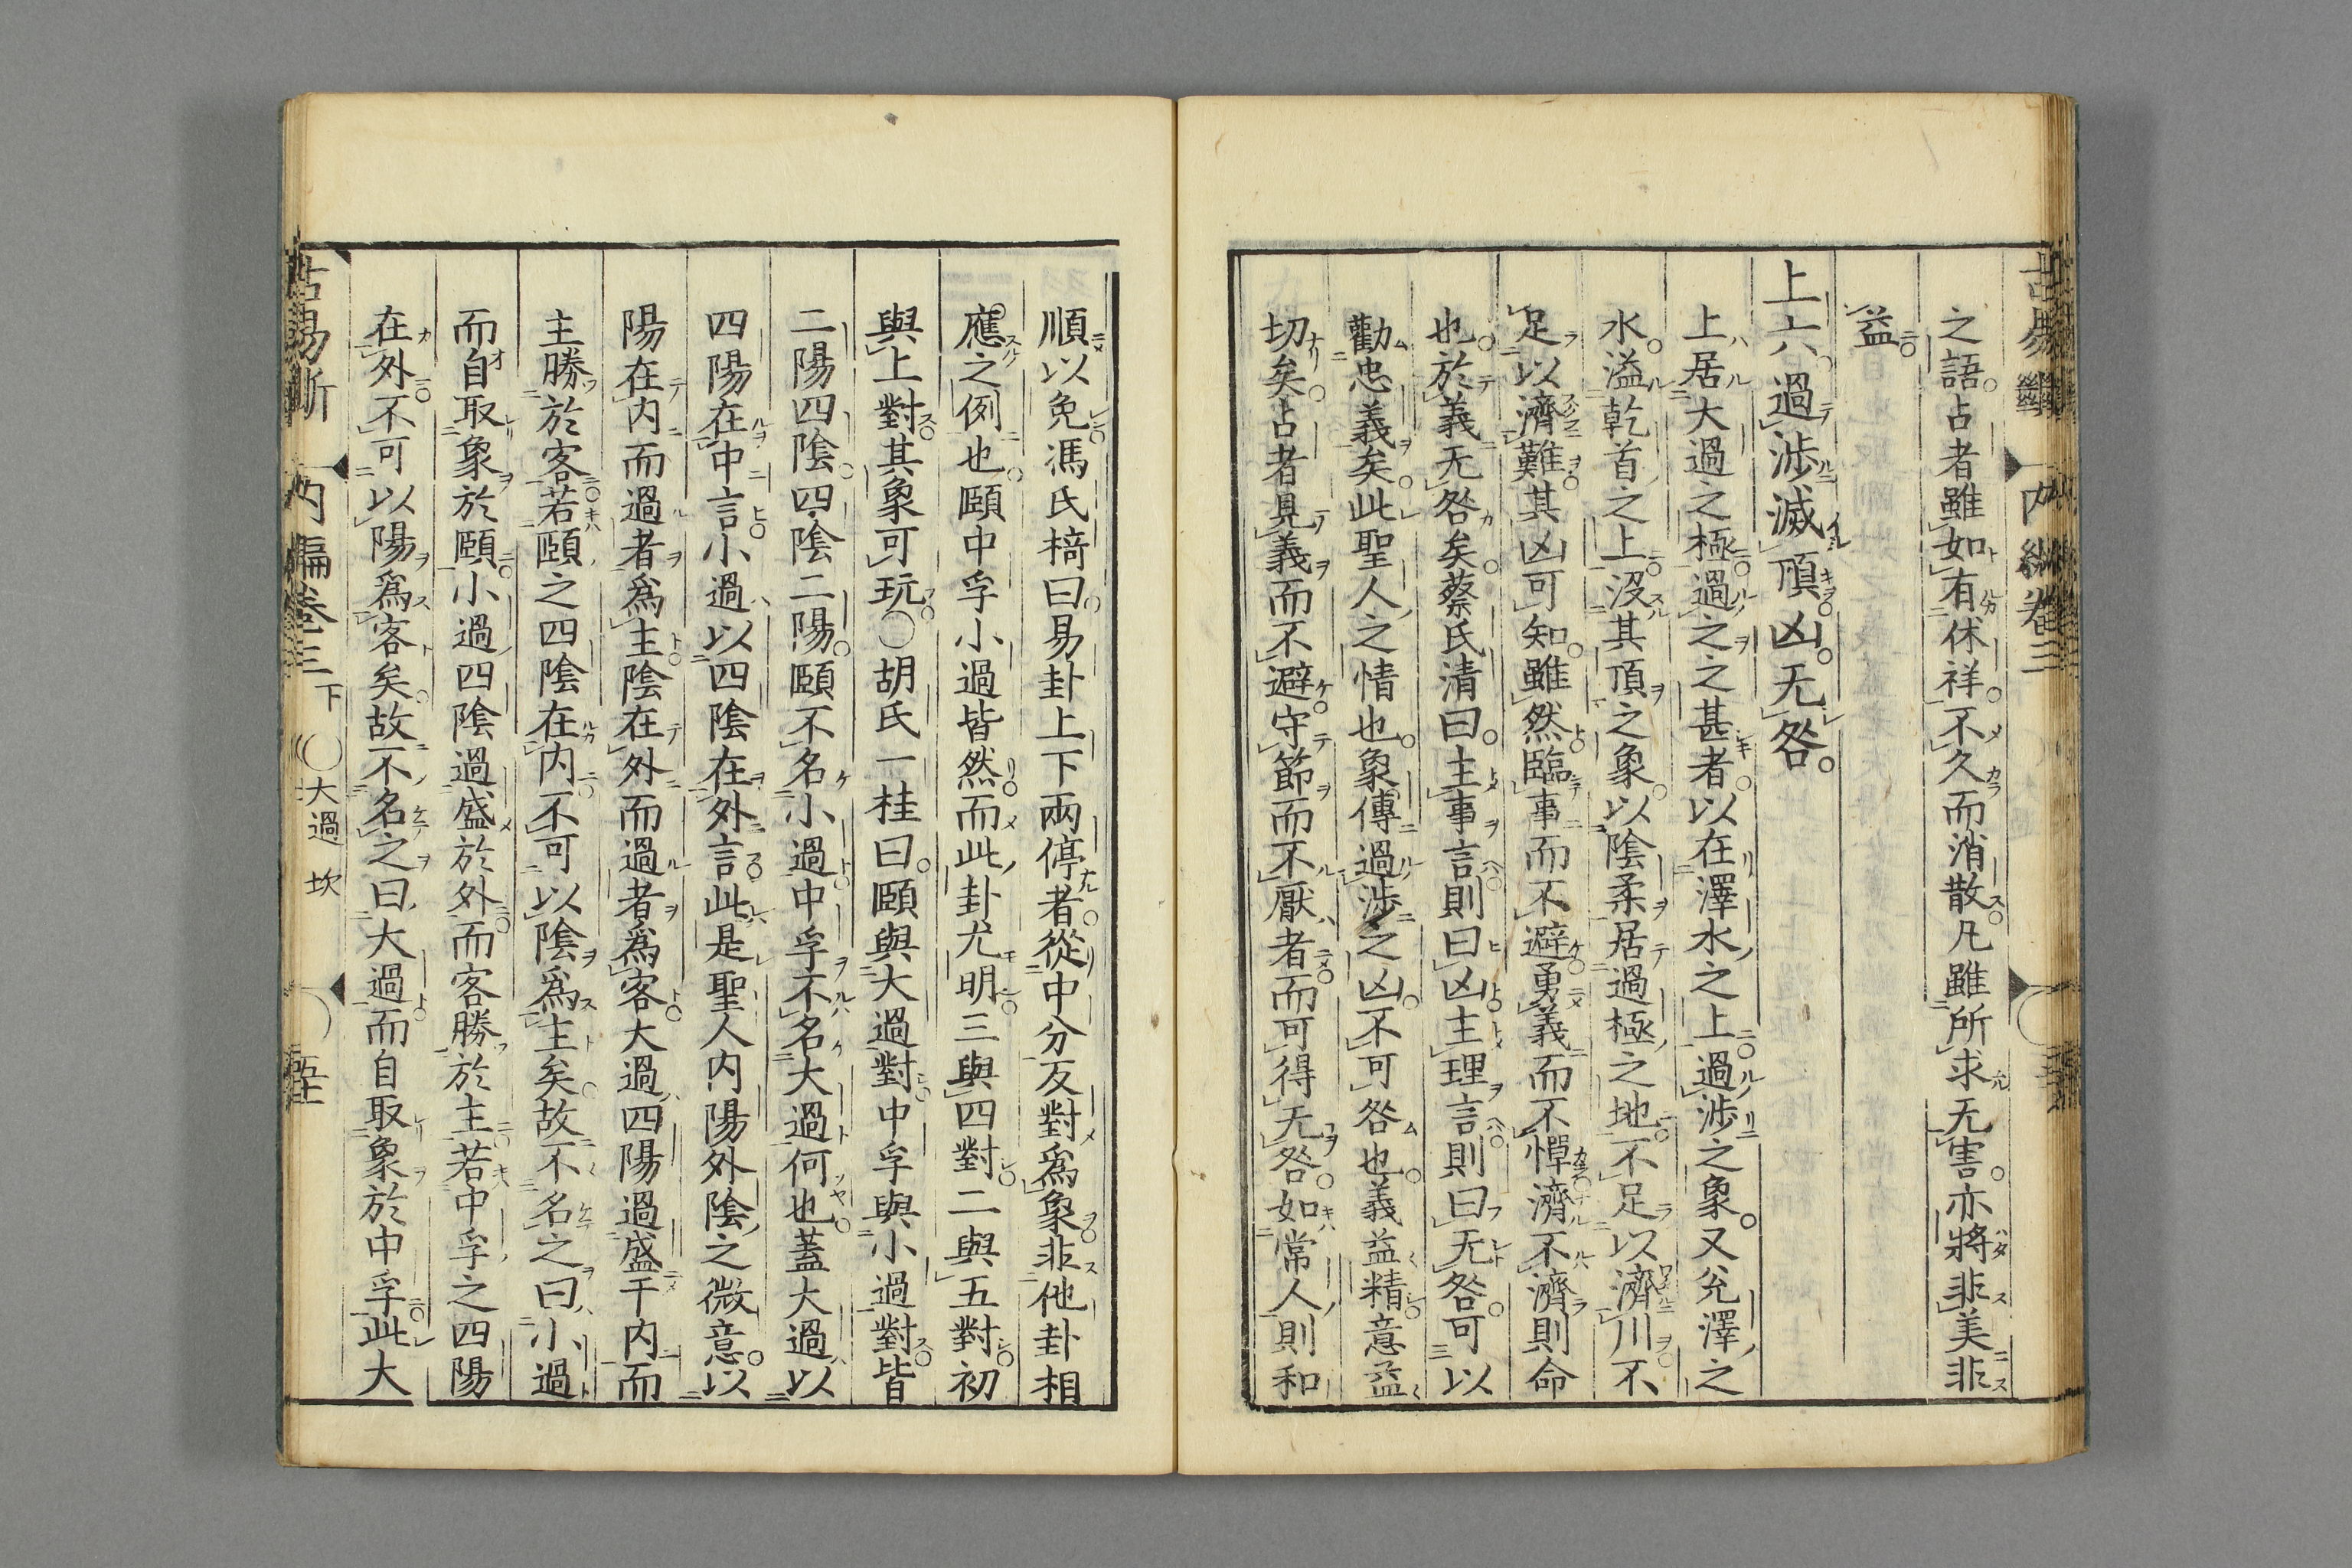 之語占者雖如有休祥不久而消散凡雖所求无害亦將非美非
益
上六過涉滅頂凶无咎
上居大過之極過之之甚者以在澤水之上過涉之象又兊澤之
水溢乾首之上沒其頂之象以陰柔居過極之地不足以濟川不
足以濟難其凶可知雖然臨事而不避勇義而不憚濟不濟則命
也於義无咎矣蔡氏清曰主事言則曰凶主理言則曰无咎可以
勸忠義矣此聖人之情也象傳過涉之凶不可咎也義益精意益
切矣占者見義而不避守節而不厭者而可得无咎如常人則和
順以免馮氏椅曰易卦上下兩停者從中分反對爲象非他卦相
應之例也頤中孚小過皆然而此卦尤明三與四對二與五對初
與上對其象可玩○胡氏一桂曰頤與大過對中孚與小過對皆
二陽四陰四陰二陽頤不名小過中孚不名大過何也蓋大過以
四陽在中言小過以四陰在外言此是聖人内陽外陰之微意以
陽在内而過者爲主陰在外而過者爲客大過四陽過盛干内而
主勝於客若頤之四陰在内不可以陰爲主矣故不名之曰小過
而自取象於頤小過四陰過盛於外而客勝於主若中孚之四陽
在外不可以陽爲客矣故不名之曰大過而自取象於中孚此大
古易斷 内編卷三下 ○大過 坎